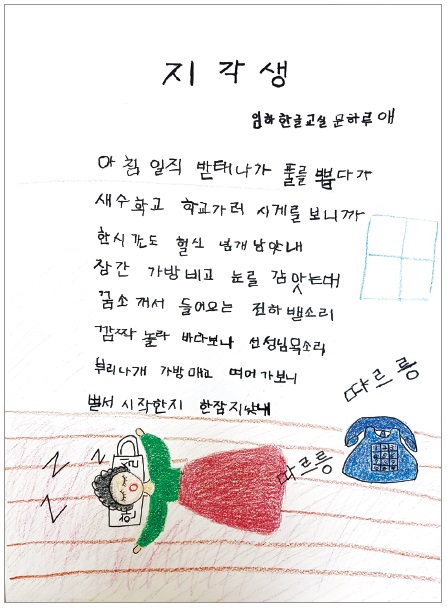 지각생
임하한글교실 문하루애
아침 일직 밭테나가 풀를 뽑다가
새수하고 학교가러 시게를 보니까
한시간도 헐신 넘개 남앗내
잠간 가방비고 눈를 감앗는대
꿈소게서 들어오는 전하밸소리
깜짝 놀라 바다보니 선성님목소리
부리나개 가방매고 띠어가보니
벌서 시작한지 한잠지낫내
따르릉
따르릉
Z Z Z
한글